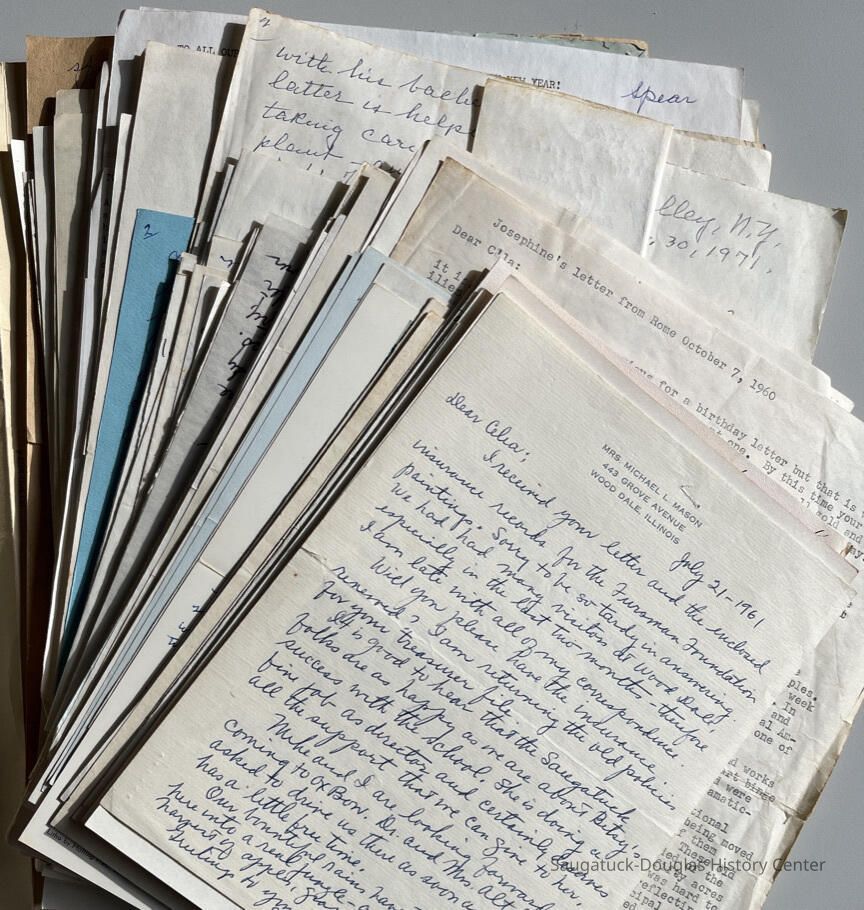 2
with his bache
latter is help
taking car
plant
TO ALL OUR
NEW YEAR!
Spear
lley, N.Y.
30, 1971.
2
Josephine's letter from Rome October 7, 1960
Dear Celia:
it i
ions for a birthday letter but that is
one. By this time your
gold and
MRS. MICHAEL L. MASON
443 GROVE AVENUE
WOOD DALE, ILLINOIS
July 21-1961
Dear Celia;
I received your letter and the enclosed
insurance records for the Fursman Foundation
paintings. Sorry to be so tardy in answering.
We had had many visitors at Wood Dale
especially in the last two months - therefore
I am late with all of my correspondence.
Will you please have the insurance
renewed? I am returning the old policies
for your treasurer file.
It is good to hear that the Saugatuck
folks are as happy as we are about Betsy's
success with the school. She is doing a
fine job as director and certainly deserves
all the support that we can give to her.
Mike and I are looking forward
coming to OxBow. Dr. and Mrs. Alt
asked to drive us there as soon a
has a little free time.
Our bountiful rains hav
here into a real jungle
harvest of apples,
ples.
week
In
and
al Am-
one of
d works
were
amatic-
tional
being moved
f them
These
the
by acres
was hard to
reflectin
cipal
ed
Saugatuck-Douglas History Center